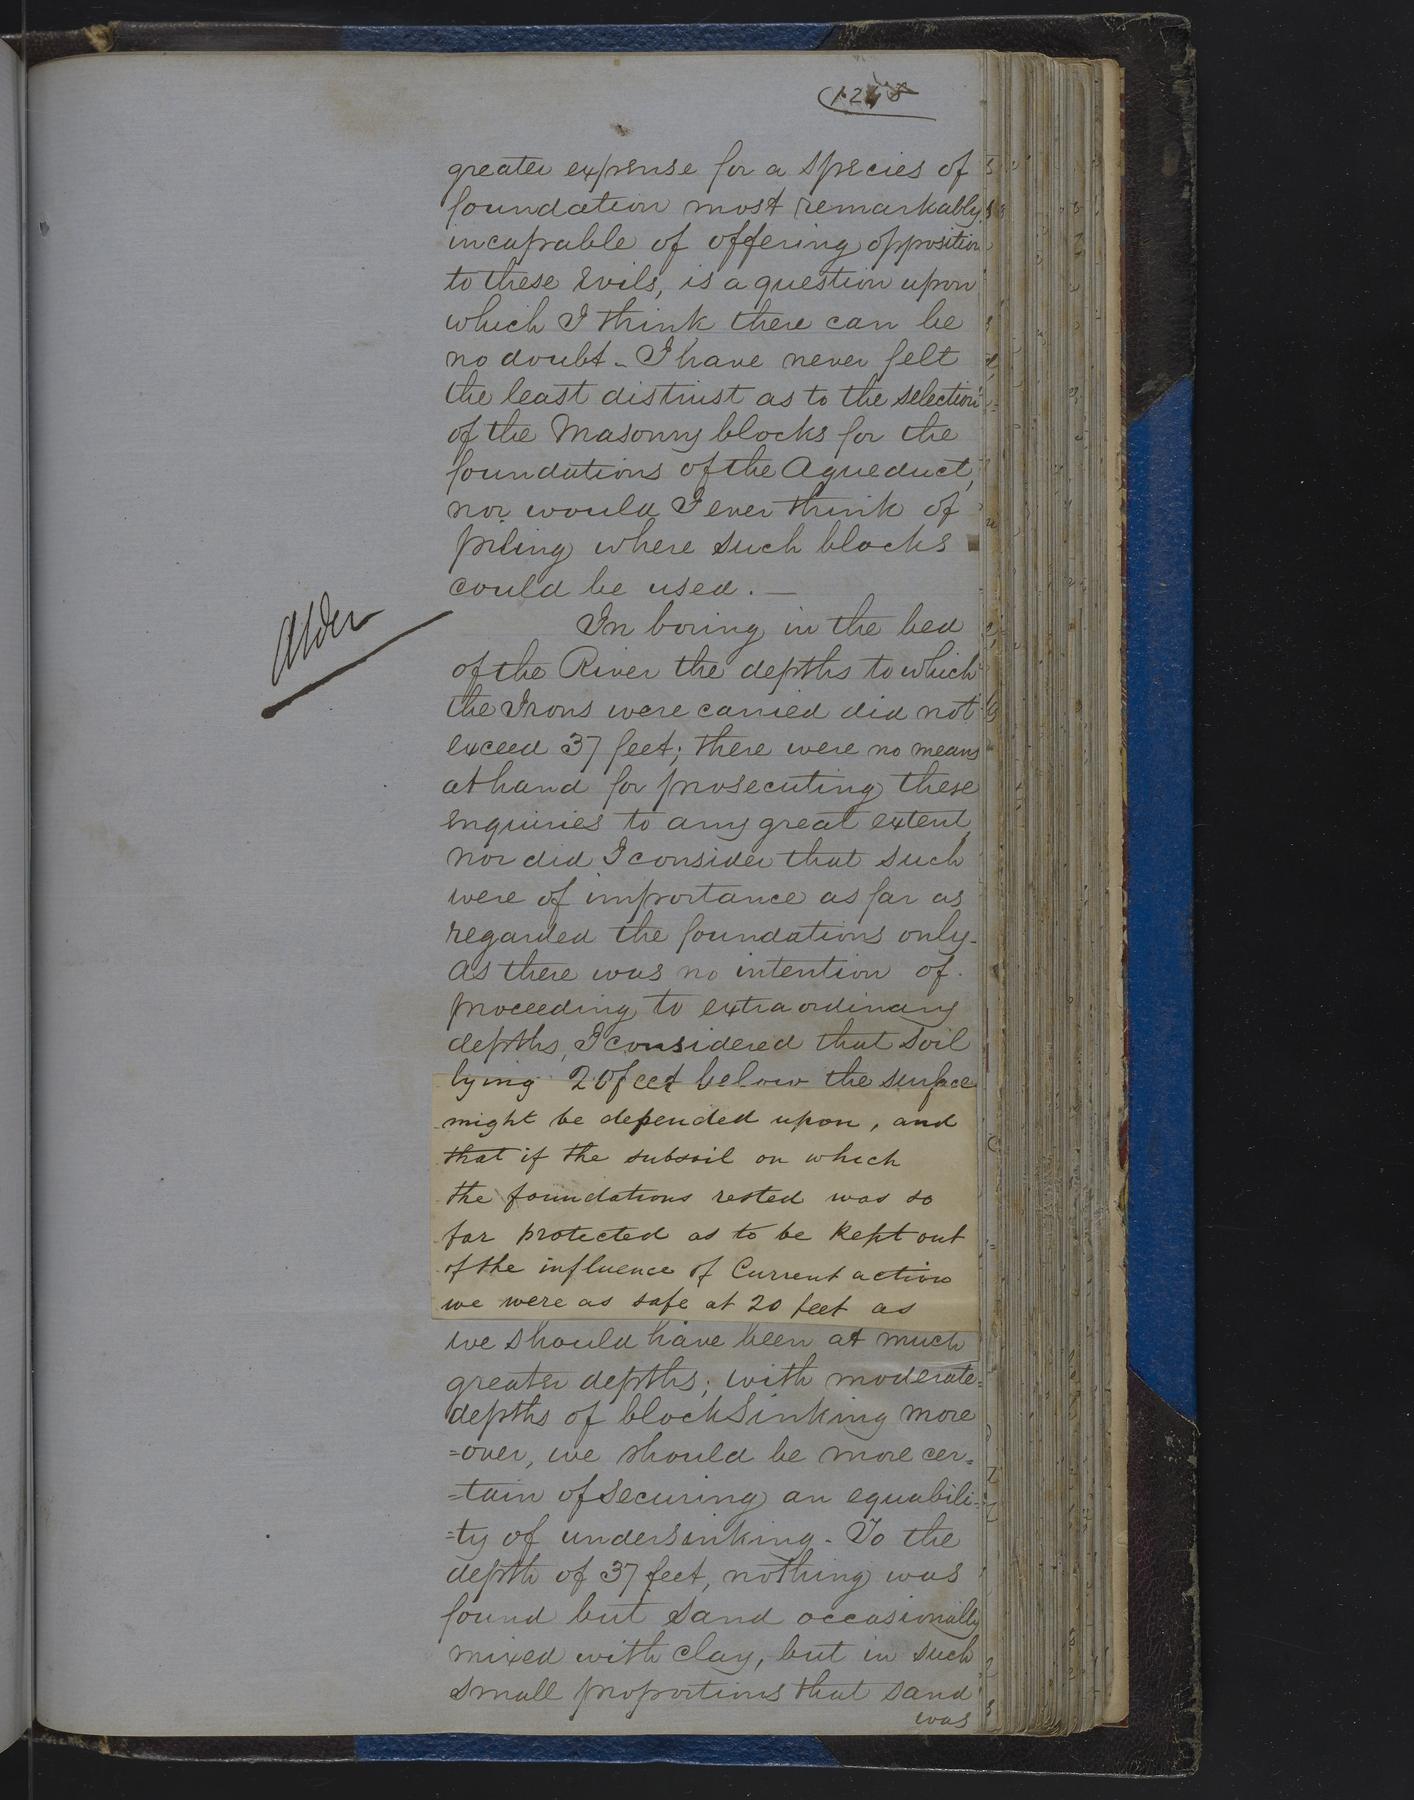 greater expense for a species of
foundation most remarkably
incapable of offering opposition
to these Evils, is a question upon
which I think there can be
no doubt - I have never felt
the least distrust as to the selection
of the Masonry blocks for the
foundations of the Aqueduct,
nor would I ever think of
piling where such blocks
could be used. —
Alder
In boring in the bed
of the River the depths to which
the Irons were carried did not
exceed 37 feet; there were no means
at hand for prosecuting these
enquiries to any great extent,
nor did I consider that such
were of importance as far as
regarded the foundations only-
As there was no intention of
proceeding to extraordinary
depths, I considered that soil
lying 20 feet below the surface
might be depended upon, and
that if the subsoil on which
the foundations rested was so
far protected as to be kept out
of the influence of Current action
we were as safe at 20 feet as
we should have been at much
greater depths; with moderate=
depths of block Sinking more
=over, we should be more cer=
=tain of securing an equabili=
=ty of undersinking - To the
depth of 37 feet, nothing was
found but sand occasionally
mixed with clay, but in such
small proportions that sand
was